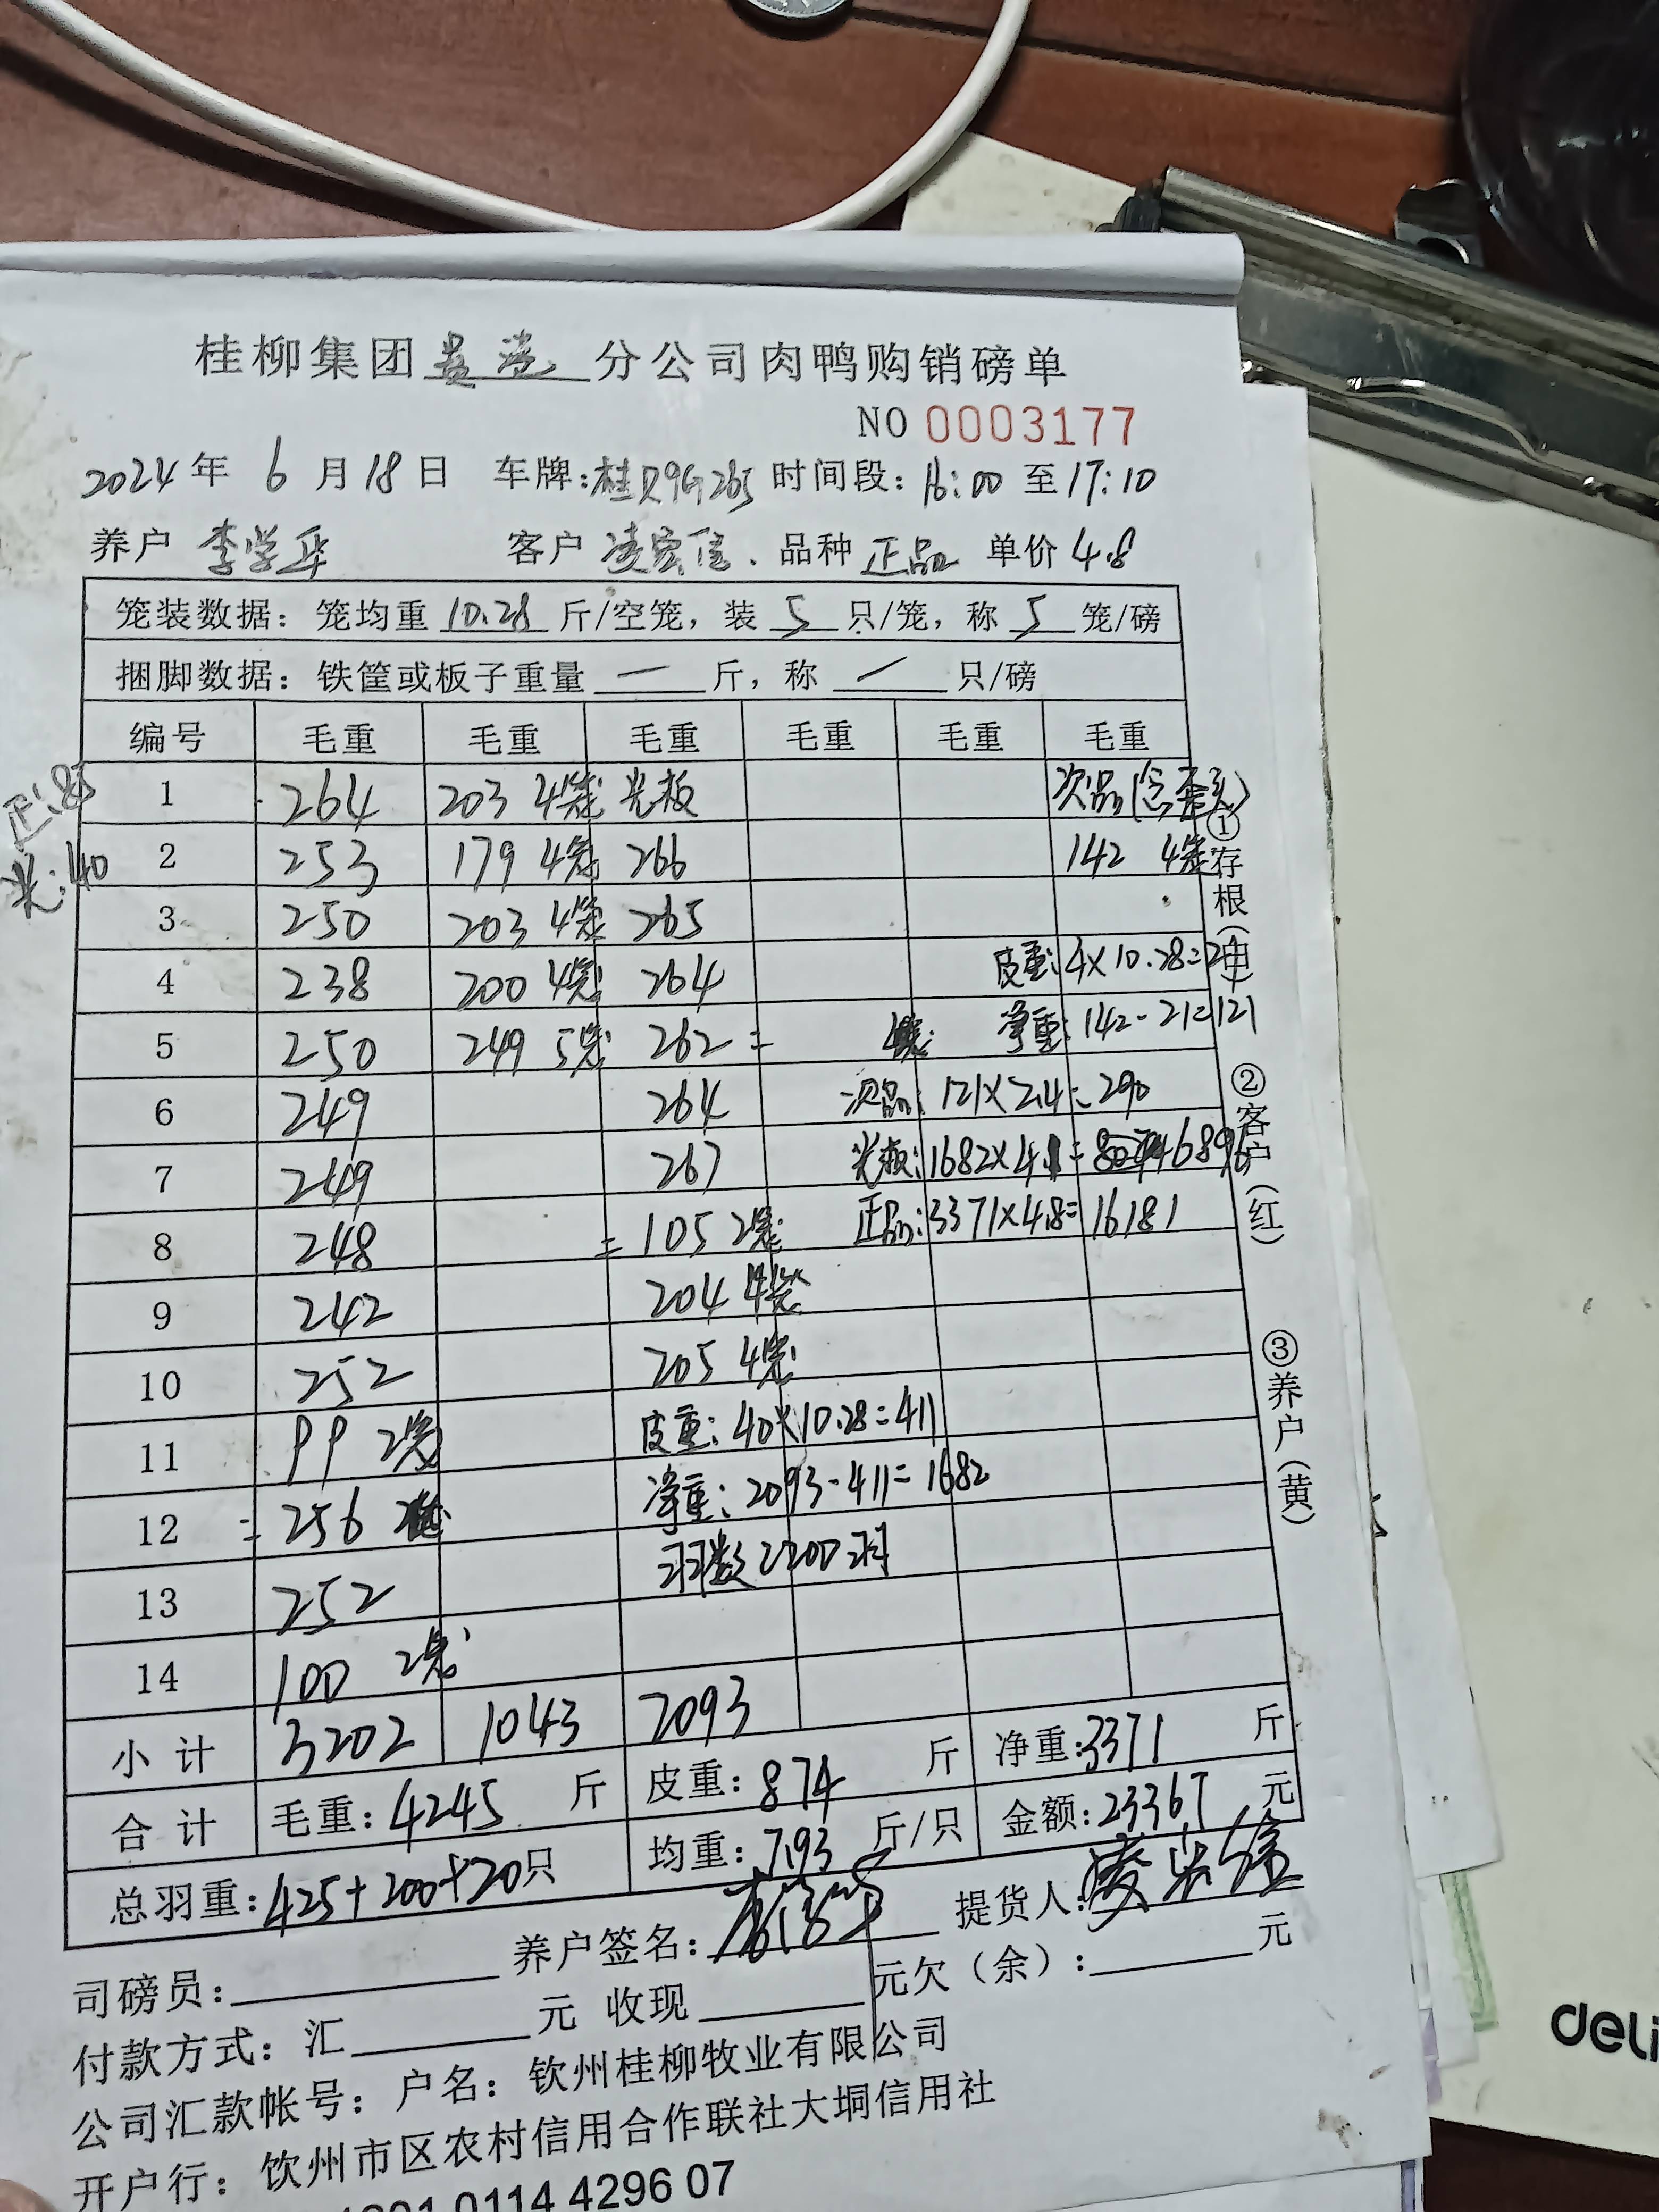 桂柳集团 贵港 分公司肉鸭购销磅单
NO 0003177
2024年 6月18日 车牌:桂R9G265 时间段:16:00至17:10
养户 李学华 客户 凌宏信. 品种 正品 单价 4.8
笼装数据:笼均重 10.28 斤/空笼,装 5 只/笼,称 5 笼/磅
捆脚数据:铁筐或板子重量 — 斤,称 / 只/磅
编号 毛重 毛重 毛重 毛重 毛重 毛重
正:85
光:40
1 264 203 4笼 光板 次品
2 253 179 4笼 266 142 4笼
3 250 203 4笼 265
4 238 200 4笼 264 皮重:4×10.28=21
5 250 249 5笼 262= 净重:142-21=121
6 249 264 次品:121×2.4=290
7 249 267 光板:1682×4.1= 6896
8 248 =105 2笼 正品:3371×4.8=16181
9 242 204 4笼
10 252 205 4笼
11 99 2笼 皮重:40×10.28=411
12 =256 净重:2093-411=1682
13 252 羽数:200羽
14 100 2笼
小计 3202 1043 2093
合计 毛重:4245 斤 皮重:874 斤 净重:3371 斤
总羽重:425+200+20只 均重:7.93 斤/只 金额:23367 元
司磅员: 养户签名: 提货人:
付款方式:汇 元 收现 元欠(余): 元
公司汇款帐号:户名:钦州桂柳牧业有限公司
开户行:钦州市区农村信用合作联社大垌信用社
0114 4296 07
①存根(白)
②客户(红)
③养户(黄)
deli